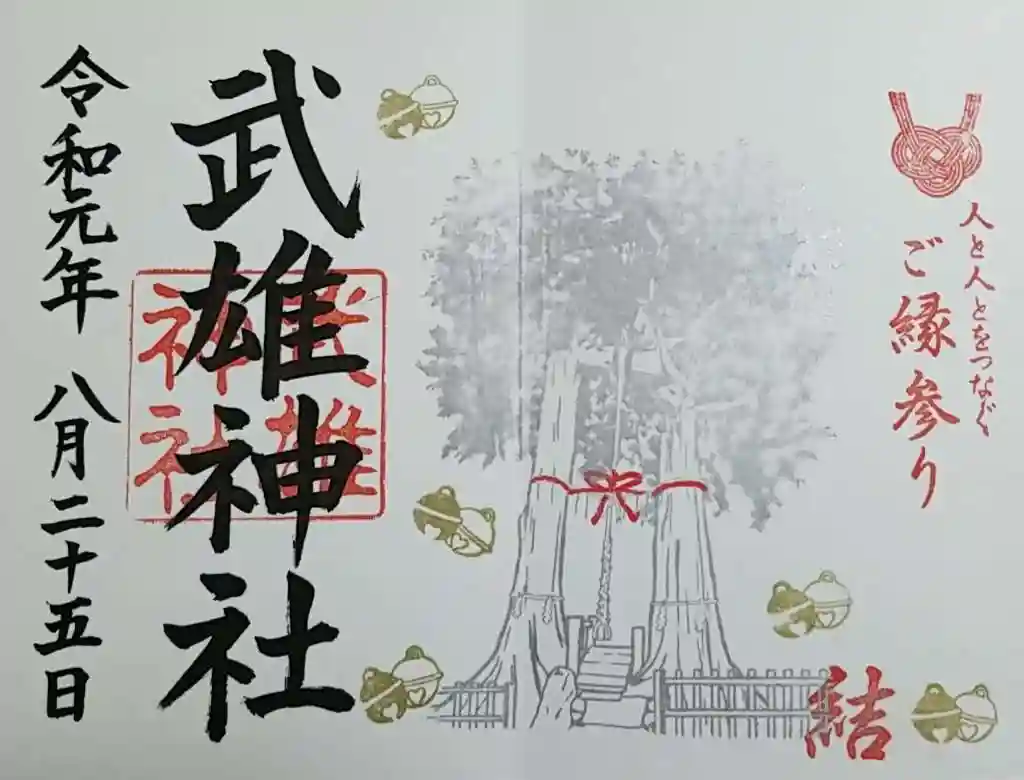 人と人とをつなぐ
ご縁参り
結
武雄神社
武雄
神社
令和元年 八月二十五日